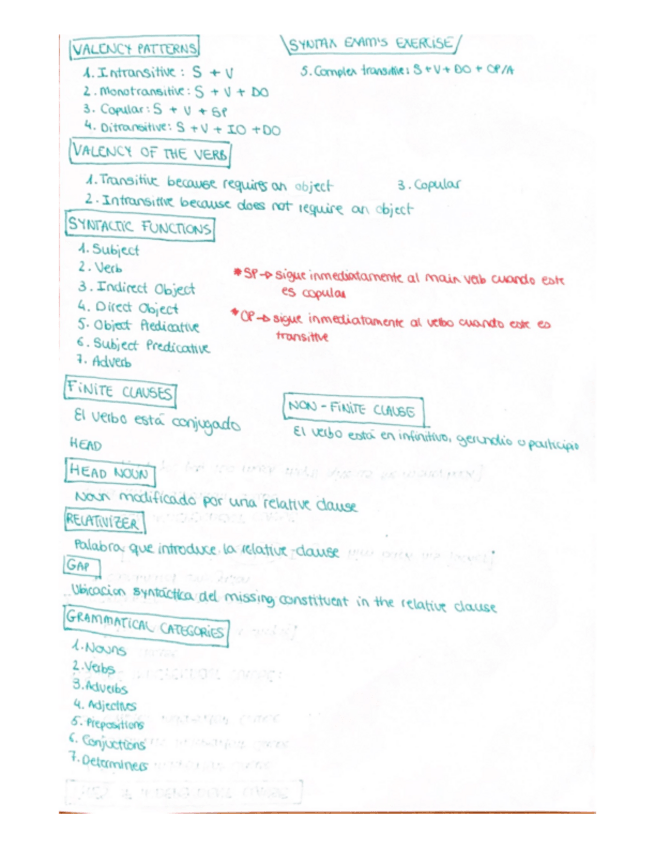 VALENCY PATTERNS
SYNTAX EXAM'S EXERCISE
1. Intransitive: S + V
5. Complex transitive: S + V + DO + OP/A
2. Monotransitive: S + V + DO
3. Copular: S + V + SP
4. Ditransitive: S + V + IO + DO
VALENCY OF THE VERB
1. Transitive because requires an object
3. Copular
2. Intransitive because does not require an object
SYNTACTIC FUNCTIONS
1. Subject
2. Verb
3. Indirect Object
4. Direct Object
5. Object Predicative
6. Subject Predicative
7. Adverb
*SP→ sigue inmediatamente al main verb cuando este
es copular
*OP→ sigue inmediatamente al verbo cuando este es
transitive
FINITE CLAUSES
El verbo está conjugado
NON-FINITE CLAUSE
El verbo está en infinitivo, gerundio o participio
HEAD
HEAD NOUN
Noun modificado por una relative clause
RELATIVIZER
Palabra que introduce la relative clause
GAP
Ubicacion syntáctica del missing constituent in the relative clause
GRAMMATICAL CATEGORIES
1. Nouns
2. Verbs
3. Adverbs
4. Adjectives
5. Prepositions
6. Conjuctions
7. Determiners